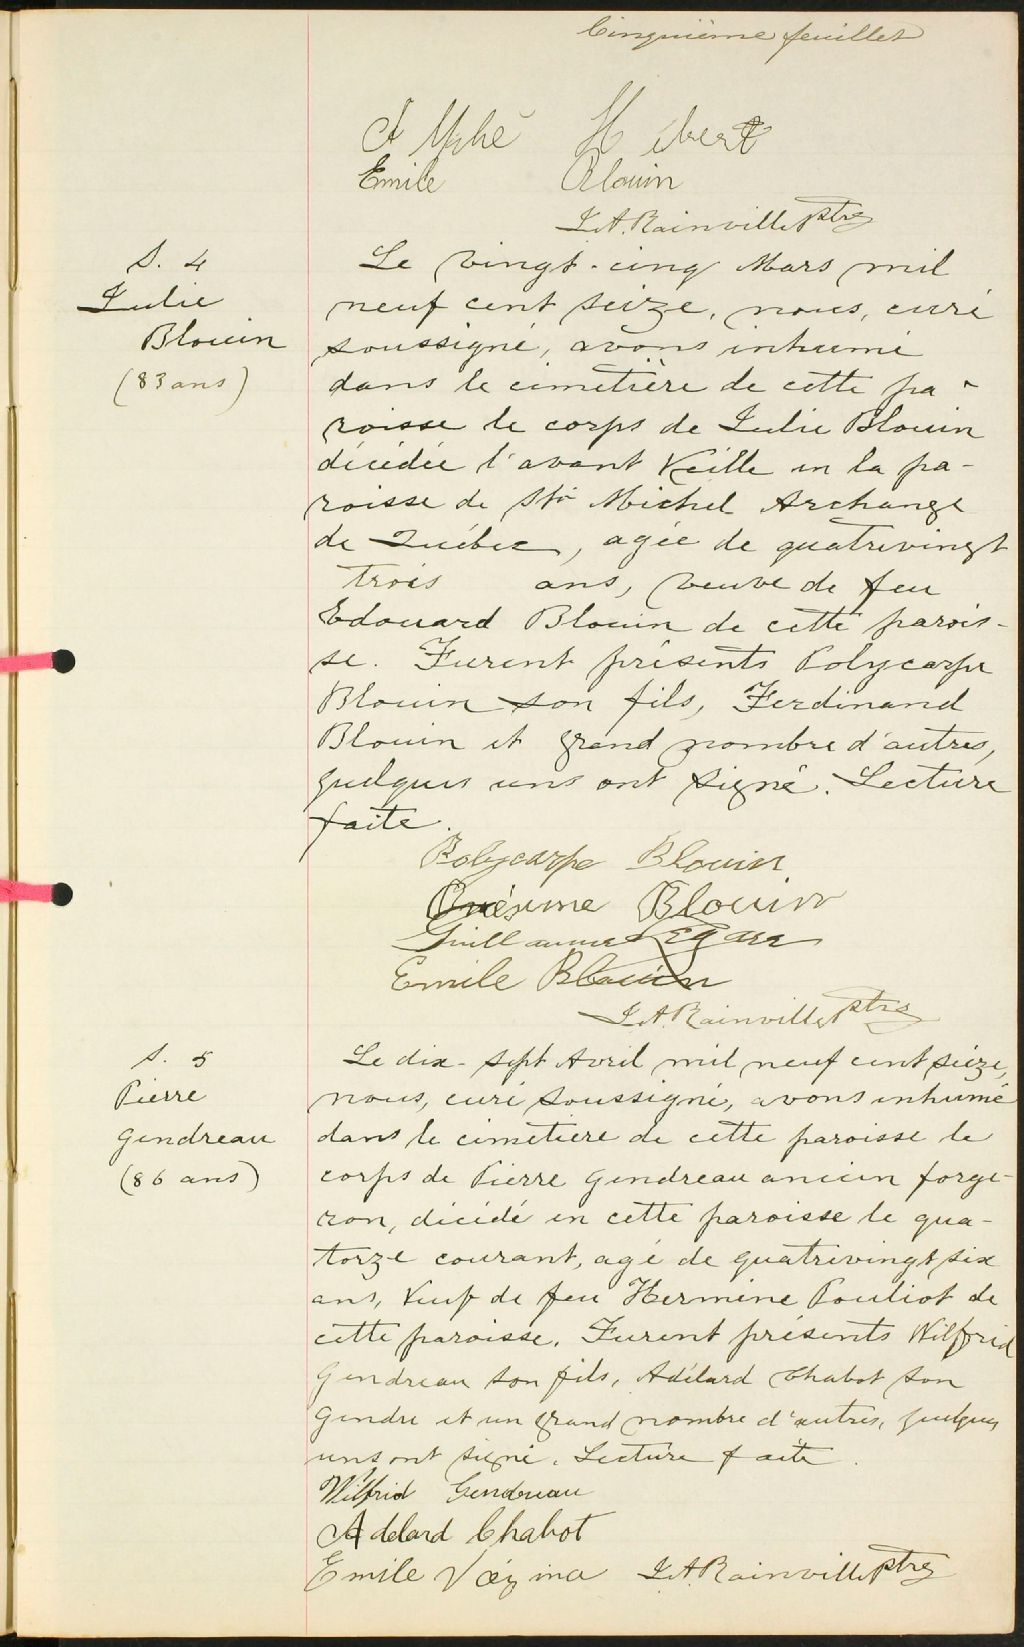 Cinquième feuillet
Alphé Hébert
Emile Blouin
J. A. Rainville ptre
S. 4
Julie
Blouin
(83 ans)
Le vingt-cinq Mars mil
neuf cent seize, nous, curé
soussigné, avons inhumé
dans le cimetière de cette pa-
roisse le corps de Julie Blouin
décédée l'avant veille en la pa-
roisse de St Michel Archange
de Québec, agée de quatrevingt
trois ans, veuve de feu
Edouard Blouin de cette parois-
se. Furent présents Polycarpe
Blouin son fils, Ferdinand
Blouin et grand nombre d'autres,
quelques uns ont signé. Lecture
faite.
Polycarpe Blouin
Onésime Blouin
Guillaume Légaré
Emile Blouin
J. A. Rainville ptre
S. 5
Pierre
Gendreau
(86 ans)
Le dix-sept Avril mil neuf cent seize,
nous, curé soussigné, avons inhumé
dans le cimetière de cette paroisse le
corps de Pierre Gendreau ancien forge-
ron, décédé en cette paroisse le qua-
torze courant, agé de quatrevingt six
ans, veuf de feu Hermine Pouliot de
cette paroisse. Furent présents Wilfrid
Gendreau son fils, Adélard Chabot son
gendre et un grand nombre d'autres, quelques
uns ont signé. Lecture faite.
Wilfrid Gendreau
Adelard Chabot
Emile Vézina J. A. Rainville ptre